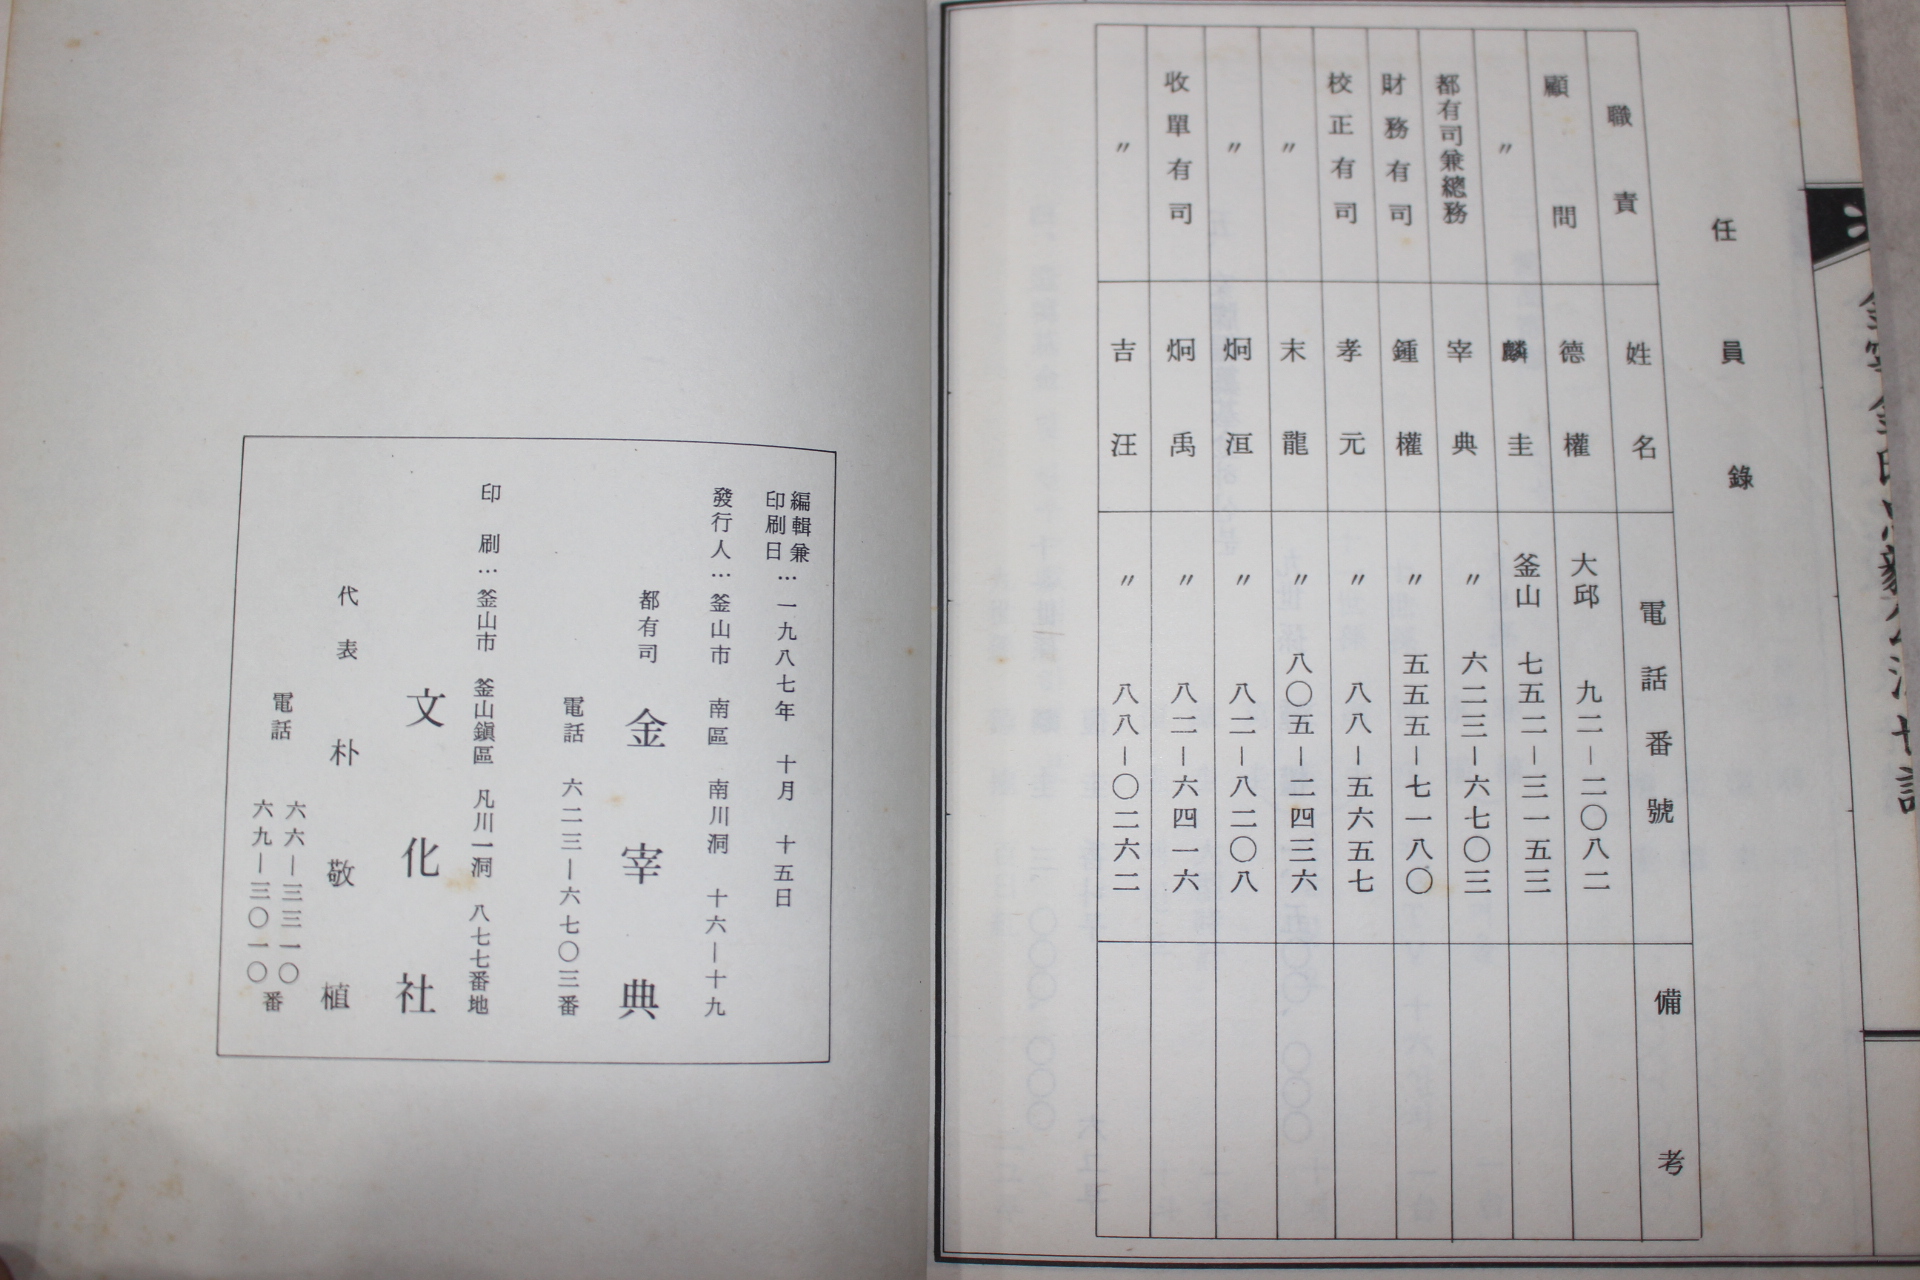 任員錄
職責 姓名 電話番號 備考
顧問 德權 大邱 九二ー二〇八二
〃 麟圭 釜山 七五二ー三一五三
都有司兼總務 宰典 〃 六二三ー六七〇三
財務有司 鍾權 〃 五五五ー七一八〇
校正有司 孝元 〃 八八ー五六五七
〃 末龍 〃 八〇五ー二四三六
〃 炯洹 〃 八二ー八二〇八
收單有司 炯禹 〃 八二ー六四一六
〃 吉汪 〃 八八ー〇二六二
編輯兼
印刷日… 一九八七年 十月 十五日
發行人… 釜山市 南區 南川洞 十六ー十九
都有司 金宰典
電話 六二三ー六七〇三番
印刷… 釜山市 釜山鎭區 凡川一洞 八七七番地
文化社
代表 朴敬植
電話 六六ー三三一〇
六九ー三〇一〇 番